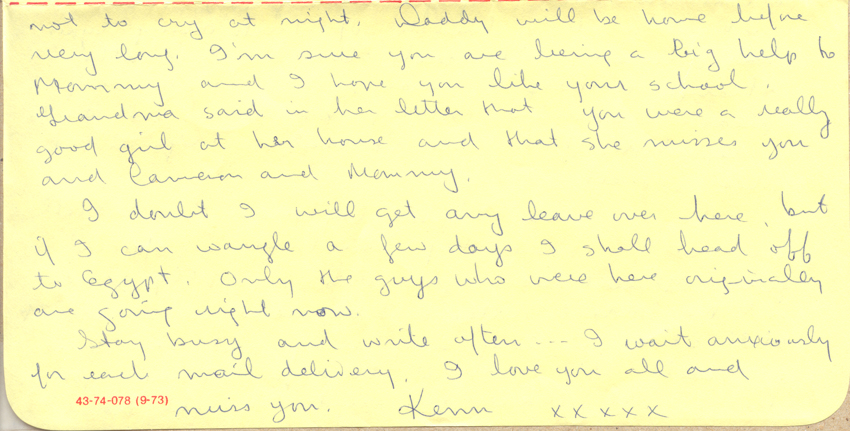 not to cry at night. Daddy will be home before
very long. I'm sure you are being a big help to
Mommy and I hope you like your school.
Grandma said in her letter that you were a really
good girl at her house and that she misses you
and Cameron and Mommy.
I doubt I will get any leave over here, but
if I can wangle a few days I shall head off
to Egypt. Only the guys who were here originally
are going right now.
Stay busy and write often --- I wait anxiously
for each mail delivery. I love you all and
43-74-078 (9-73)
miss you. Kenn x x x x x